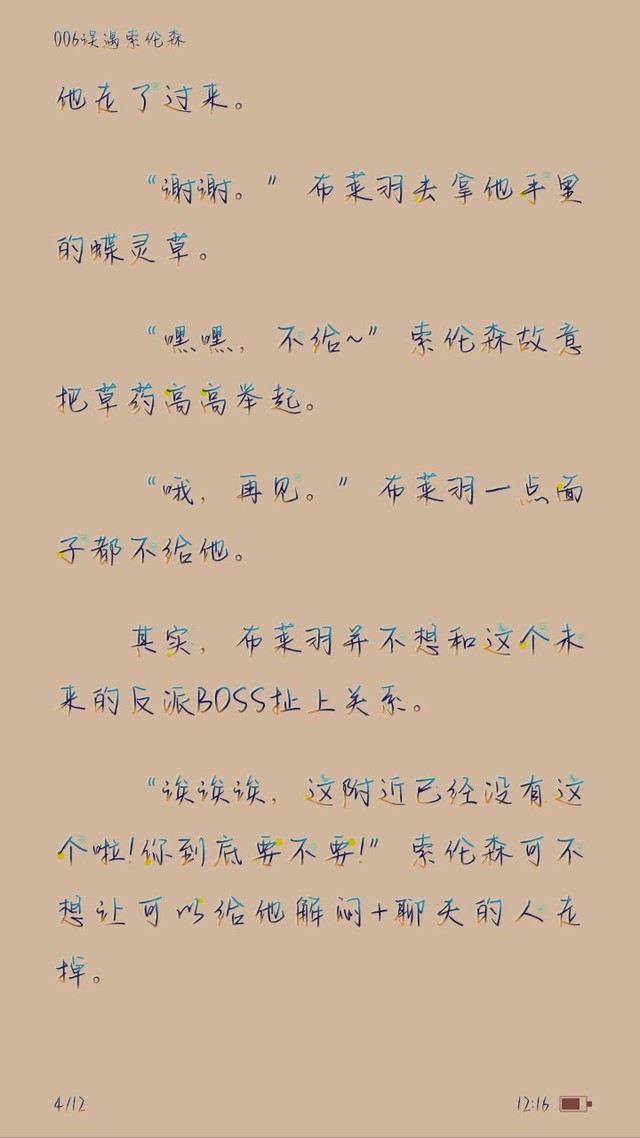 006误遇索伦森
他走了过来。
“谢谢。” 布莱羽去拿他手里
的蝶灵草。
“嘿嘿，不给~” 索伦森故意
把草药高高举起。
“哦，再见。” 布莱羽一点面
子都不给他。
其实，布莱羽并不想和这个未
来的反派BOSS扯上关系。
“诶诶诶，这附近已经没有这
个啦!你到底要不要!” 索伦森可不
想让可以给他解闷+聊天的人走
掉。
4/12
12:16